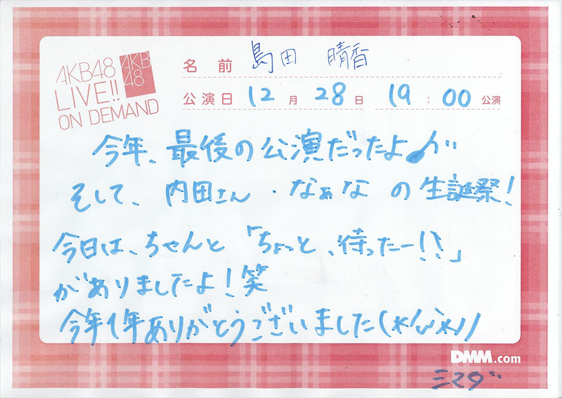 AKB48
LIVE!!
ON DEMAND
AKB
48
名前 島田 晴香
公演日 12月28日 19:00公演
今年、最後の公演だったよ♪
そして、内田さん・なぁなの生誕祭!
今日は、ちゃんと「ちょっと、待ったー!?」
がありましたよ!笑
今年1年ありがとうございました
DMM.com
ミマダ